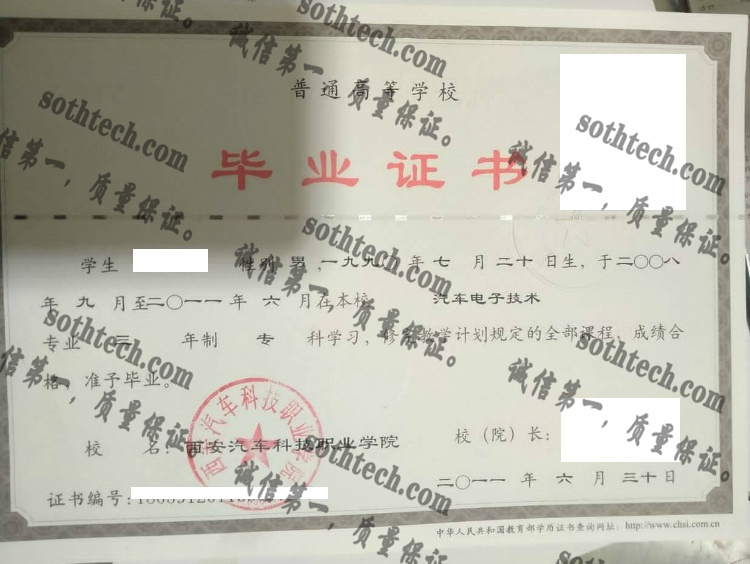 普通高等学校
毕业证书
学生 性别 男 ,一九九〇年 七 月 二十 日生, 于二〇〇八
年 九 月至二〇一一年 六 月在本校 汽车电子技术
专业 三 年制 专 科学习, 修完教学计划规定的全部课程, 成绩合
格, 准予毕业。
校 名: 西安汽车科技职业学院
校(院)长:
西安汽车科技职业学院
证书编号:
二〇一一年 六 月 三十日
中华人民共和国教育部学历证书查询网址: http://www.chsi.com.cn
sothtech.com
诚信第一,质量保证。
sothtech.com
诚信第一,质量保证。
sothtech.com
诚信第一,质量保证。
sothtech.com
诚信第一,质量保证。
sothtech.com
诚信第一,质量保证。
sothtech.com
诚信第一,质量保证。
sothtech.com
诚信第一,质量保证。
sothtech.com
诚信第一,质量保证。
sothtech.com